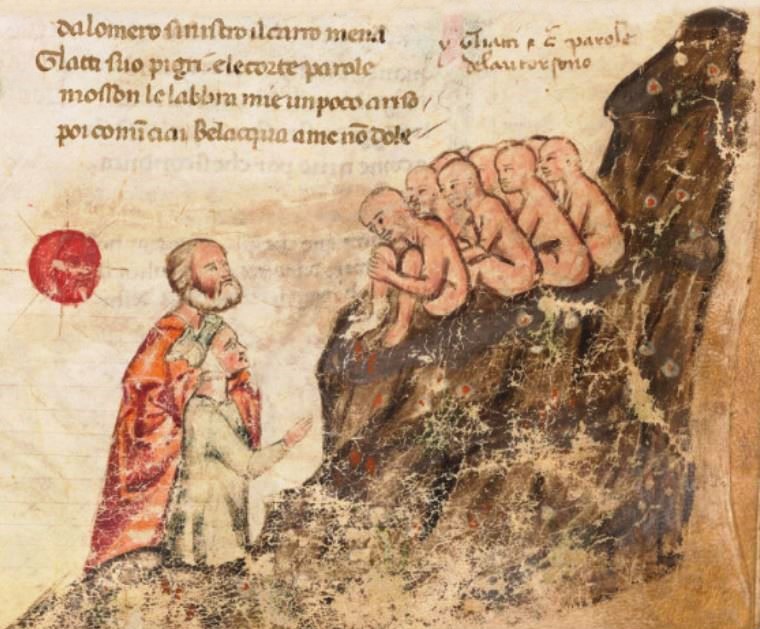 dalomero sinistro ilcarro mena
Glatti suo pigri elecorte parole
mosson lelabbra mie unpoco ariso
poi comīciai Belacqua ame nō dole
Gliatti ⁊ c̄ parole
delautor sono